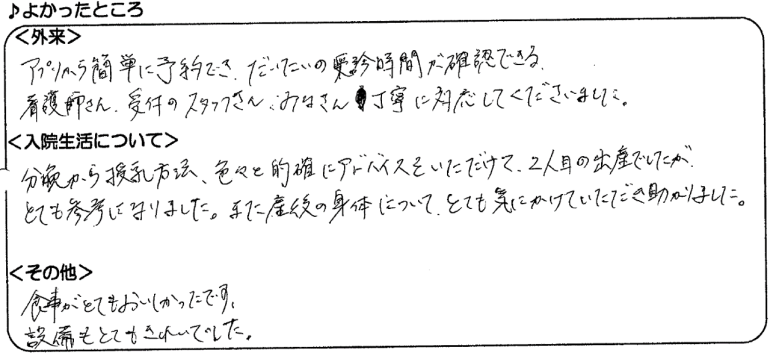 ♪よかったところ
<外来>
アプリから簡単に予約でき、だいたいの受診時間が確認できる。
看護師さん、受付のスタッフさん、みなさん丁寧に対応してくださいました。
<入院生活について>
分娩から授乳方法、色々と的確にアドバイスをいただけて、2人目の出産でしたが、
とても参考になりました。また産後の身体について、とても気にかけていただき助かりました。
<その他>
食事がとてもおいしかったです。
設備もとてもきれいでした。